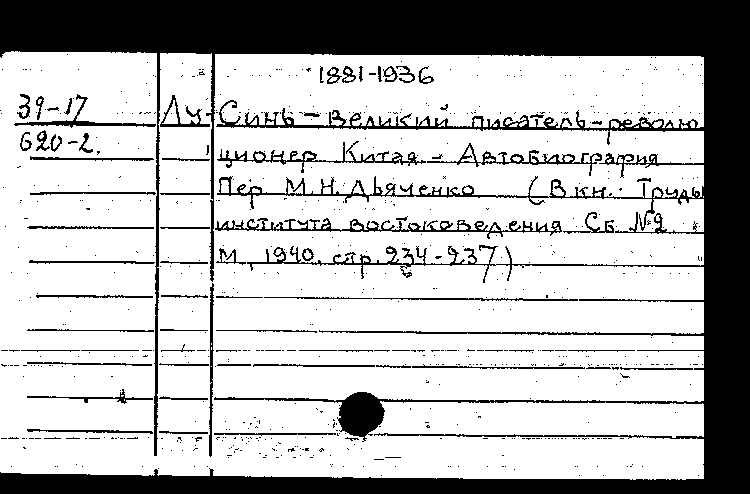 1881-1936
39-17 Лу-Синь - великий писатель-револю
620-2. ционер Китая - Автобиография
Пер М.Н. Дьяченко (В кн.: Труды
института востоковедения Сб №2
М., 1940. стр. 234-237)